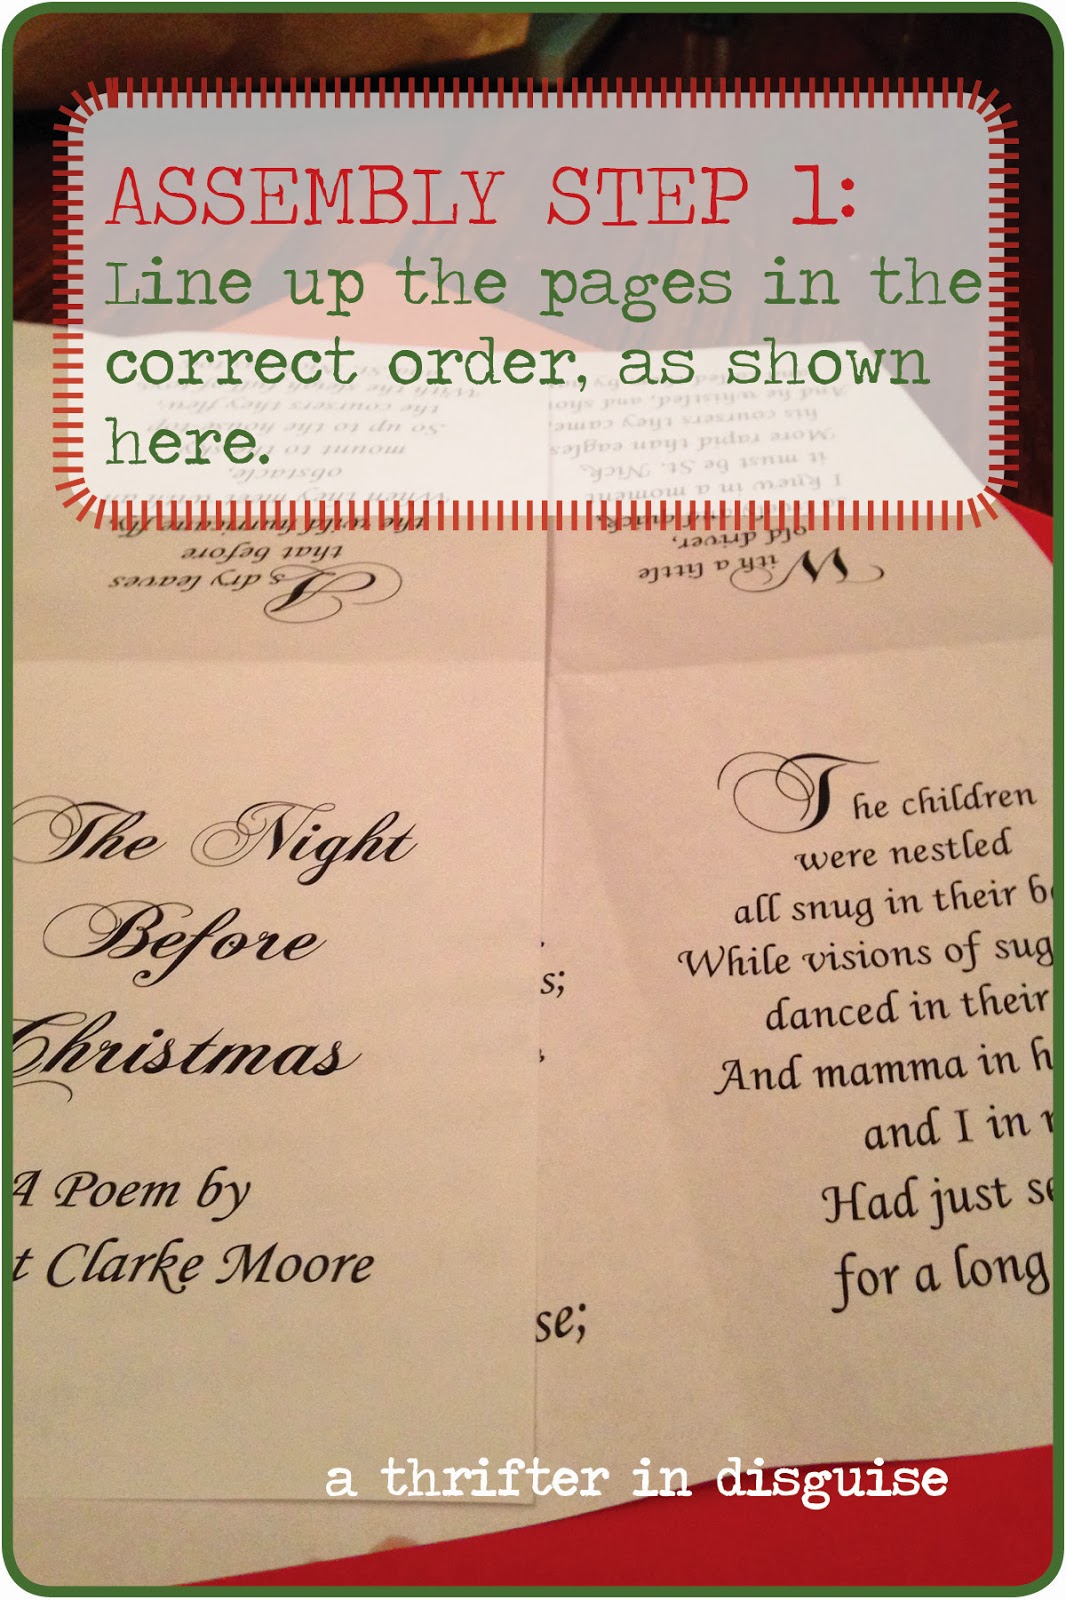 ASSEMBLY STEP 1:
Line up the pages in the
correct order, as shown
here.
As dry leaves
that before
the wild hurricane fly,
When they meet with an
obstacle,
mount to the
So up to the house-top
the coursers they flew,
With the
With a little
old driver,
and quick,
I knew in a moment
it must be St. Nick.
More rapid than eagles
his coursers they came,
And he whistled, and shou
The Night
Before
Christmas
A Poem by
t Clarke Moore
s;
se;
The children
were nestled
all snug in their be
While visions of sug
danced in their
And mamma in h
and I in
Had just se
for a long
a thrifter in disguise